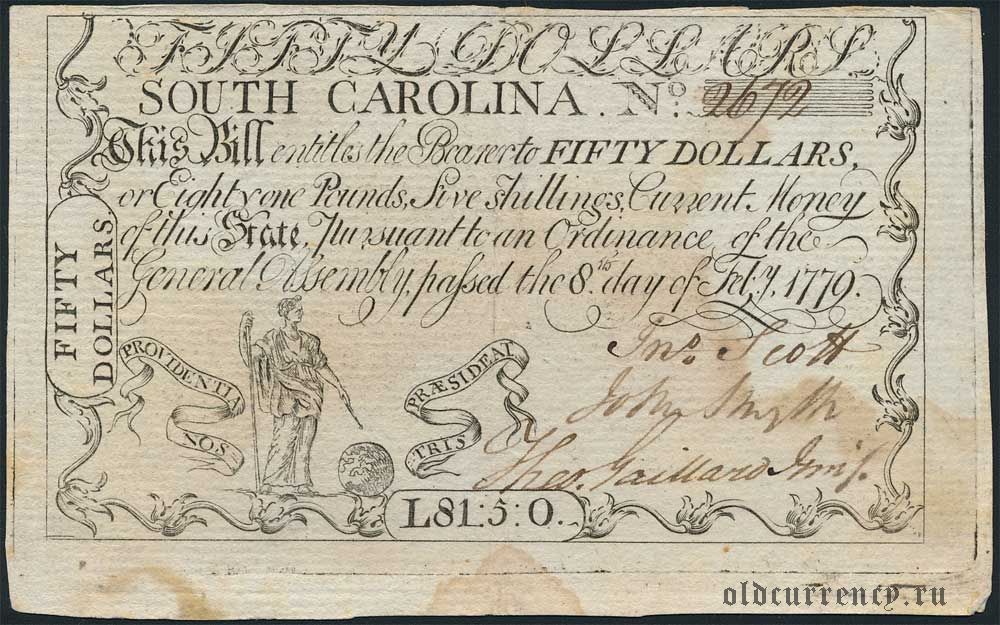 FIFTY DOLLARS
SOUTH CAROLINA. No. 2672
This Bill entitles the Bearer to FIFTY DOLLARS,
or Eighty one Pounds, Five shillings, Current Money
of this State, Pursuant to an Ordinance, of the
General Assembly, passed the 8.th day of Feb:y, 1779.
FIFTY
DOLLARS
PROVIDENTIA
NOS
PRÆSIDEAT
TRIS
Jno. Scott
John Smyth
Theo. Gaillard Junr.
L81:5:0.
oldcurrency.ru